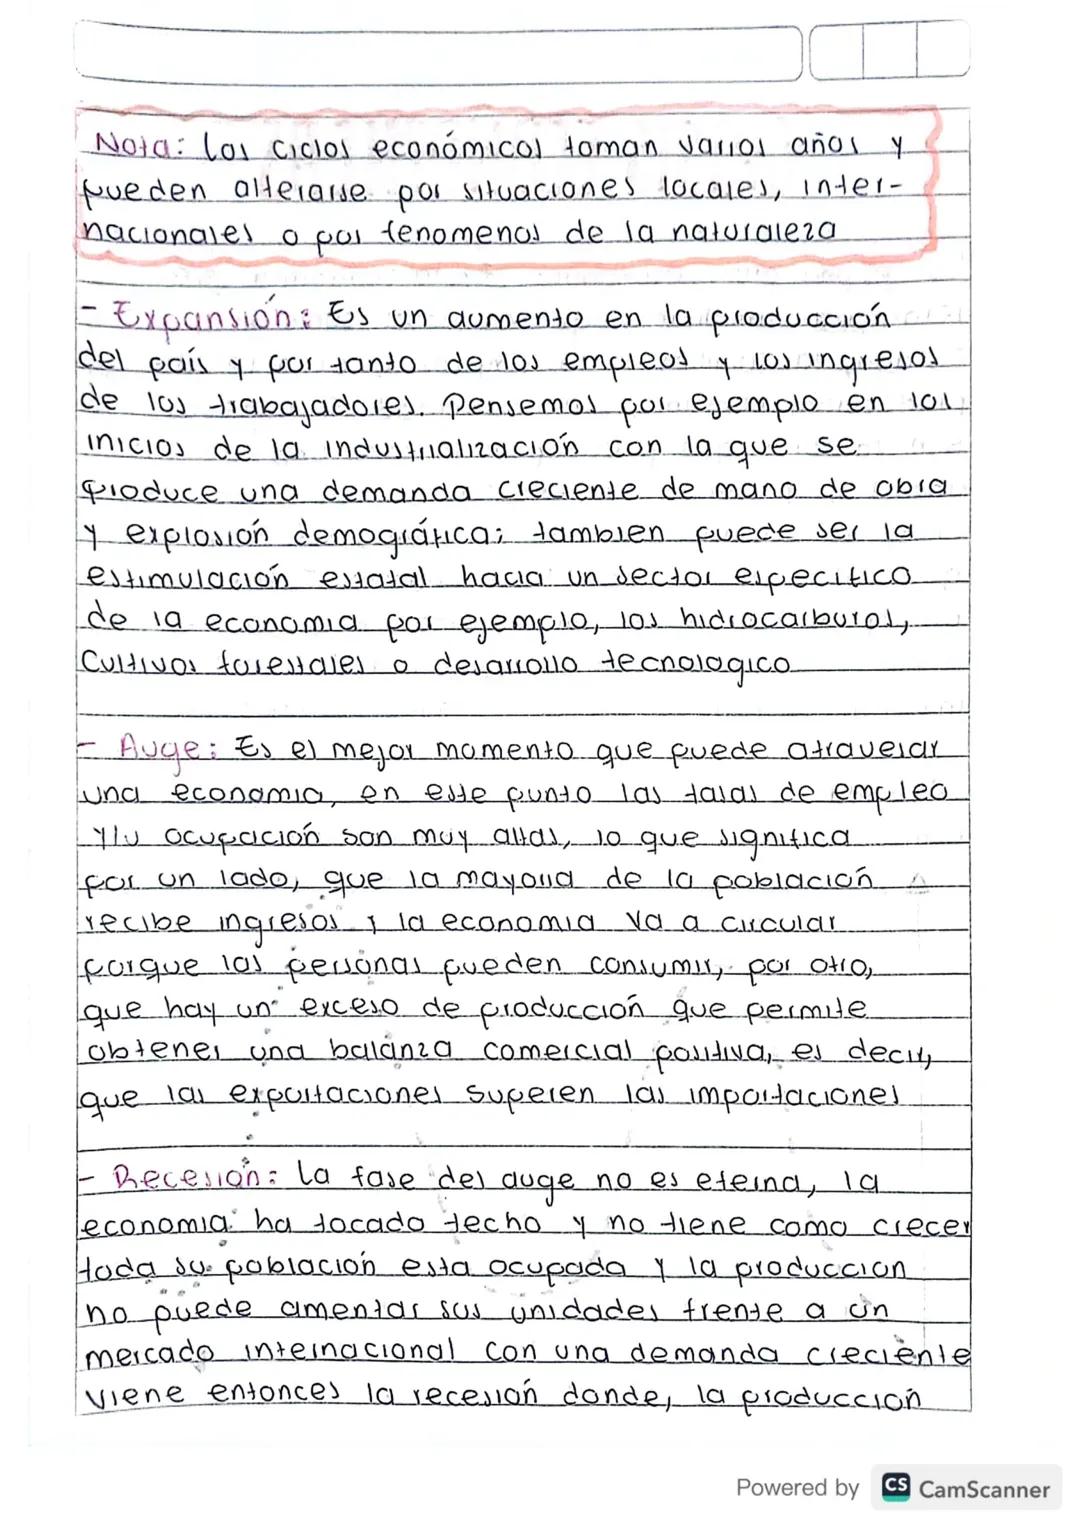 Nota: Los ciclos económicos toman varios años y
pueden alterarse por situaciones locales, inter-
nacionales o por fenomenos de la naturaleza
- Expansión: Es un aumento en la producción
del país y por tanto de los empleos y los ingresos
de los trabajadores. Pensemos por ejemplo en los
inicios de la industrialización con la que se
produce una demanda creciente de mano de obra
y explosión demográfica; tambien puede ser la
estimulación estatal hacia un sector especifico
de la economia por ejemplo, los hidrocarburos,
Cultivos forestales o desarrollo tecnologico
- Auge: Es el mejor momento que puede atravesar
una economia, en este punto las tasas de empleo
y/u ocupación son muy altas, lo que significa
por un lado, que la mayoria de la población
recibe ingresos y la economia va a circular
porque las personas pueden consumir, por otro,
que hay un exceso de producción que permite
obtener una balanza comercial positiva, es decir,
que las exportaciones superen las importaciones
- Recesión: La fase del auge no es eterna, la
economia ha tocado techo y no tiene como crecer
toda su población esta ocupada y la produccion
no puede amentar sus unidades frente a un
mercado internacional con una demanda creciente
viene entonces la recesión donde, la producción
Powered by CS CamScanner